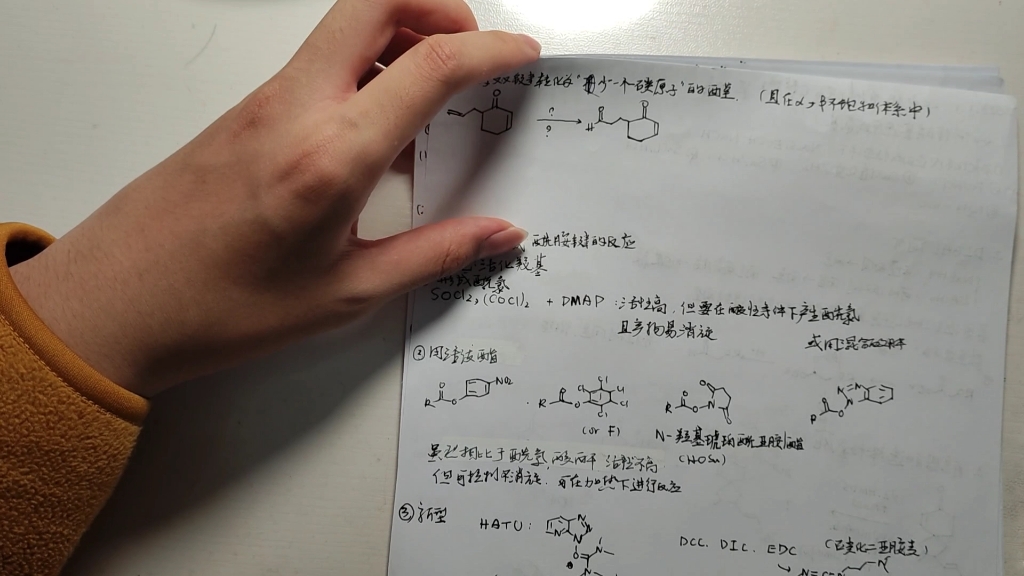 双键转化为"少一个碳原子"的醛基. (且在α,β不饱和体系中)
O O
? H
?
酰胺键的反应
活化羧基
酰氯
SOCl₂, (COCl)₂ + DMAP : 活性高, 但要在酸性条件下产生酰氯
且产物易消旋 或用混合酸酐
② 用活泼酯
R O O NO₂ R O O Cl Cl Cl Cl Cl R O O N O O R O O N N N
(or F) N-羟基琥珀酰亚胺酯
(HOSu)
虽已相比于酰氯, 酸酐 活性不高
但可控制不消旋. 可在加热下进行反应
③ 新型 HATU: DCC. DIC. EDC (碳化二亚胺类)
N=C=N